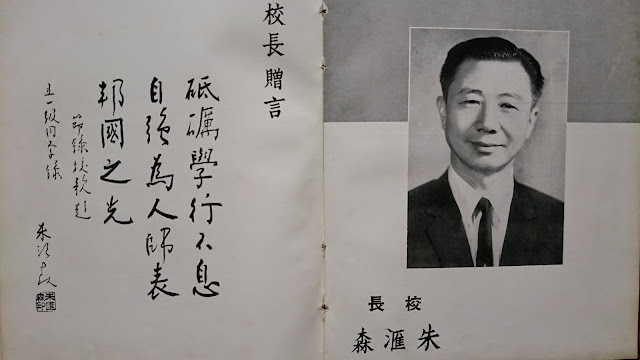 校長
朱滙森
校長贈言
砥礪學行不息
自強為人師表
邦國之光
節錄校歌題
五一級同學錄
朱滙森